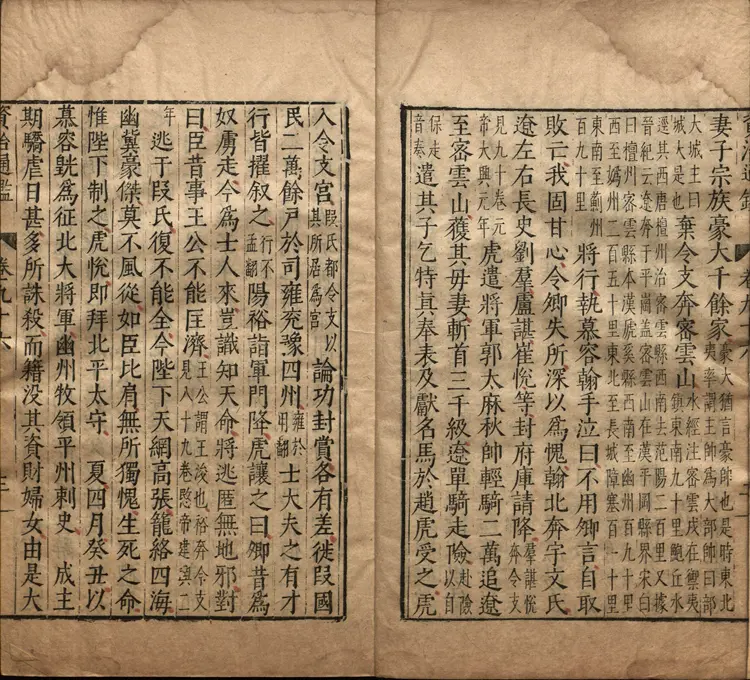 妻子宗族豪大千餘家豪大猶言豪帥也是時東北夷率謂主帥爲大部帥曰部
大城主曰城大是也棄令支奔密雲山水經注密雲戍在禦夷鎮東南九十里鮑丘水
逕其西唐檀州治密雲縣西南去范陽二百里又據晉紀云遼奔于平崗蓋密雲山在漢平岡縣界宋白
曰檀州密雲縣本漢虒奚縣西南至幽州百九十里西至媯州二百五十里東北至長城障塞百一十里
東南至薊州百九十里將行執慕容翰手泣曰不用卿言自取
敗亡我固甘心令卿失所深以爲愧翰北奔宇文氏
遼左右長史劉羣盧諶崔悅等封府庫請降羣諶悅奔令支
見九十卷元帝大興元年虎遣將軍郭太麻秋帥輕騎二萬追遼
至密雲山獲其母妻斬首三千級遼單騎走險赴險以自
保走音奏遣其子乞特眞奉表及獻名馬於趙虎受之虎
入令支宮段氏都令支以其所居爲宮論功封賞各有差徙段國
民二萬餘戸於司雍兗豫四州雍於用翻士大夫之有才
行皆擢叙之行下孟翻陽裕詣軍門降虎讓之曰卿昔爲
奴虜走今爲士人來豈識知天命將逃匿無地邪對
曰臣昔事王公不能匡濟王公謂王浚也裕奔令支見八十九卷愍帝建興二
年逃于段氏復不能全今陛下天網高張籠絡四海
幽冀豪傑莫不風從如臣比肩無所獨愧生死之命
惟陛下制之虎悅即拜北平太守　夏四月癸丑以
慕容皝爲征北大將軍幽州牧領平州刺史　成主
期驕虐日甚多所誅殺而籍没其資財婦女由是大
資治通鑑　卷九十六